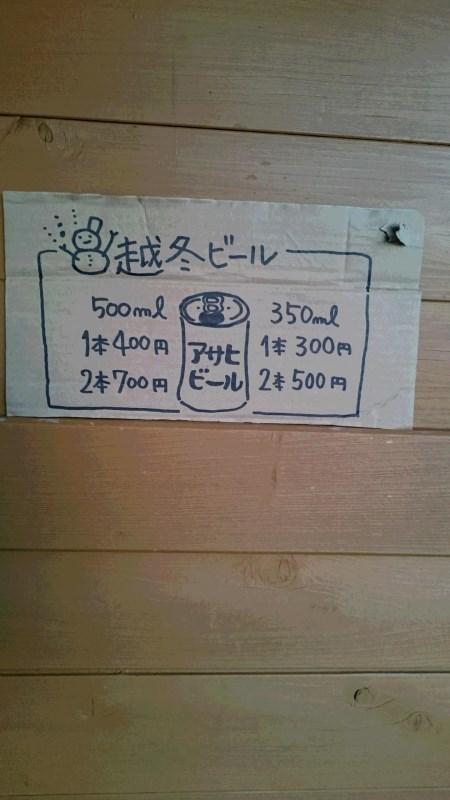 越冬ビール
500ml
1本400円
2本700円
アサヒ
ビール
350ml
1本300円
2本500円